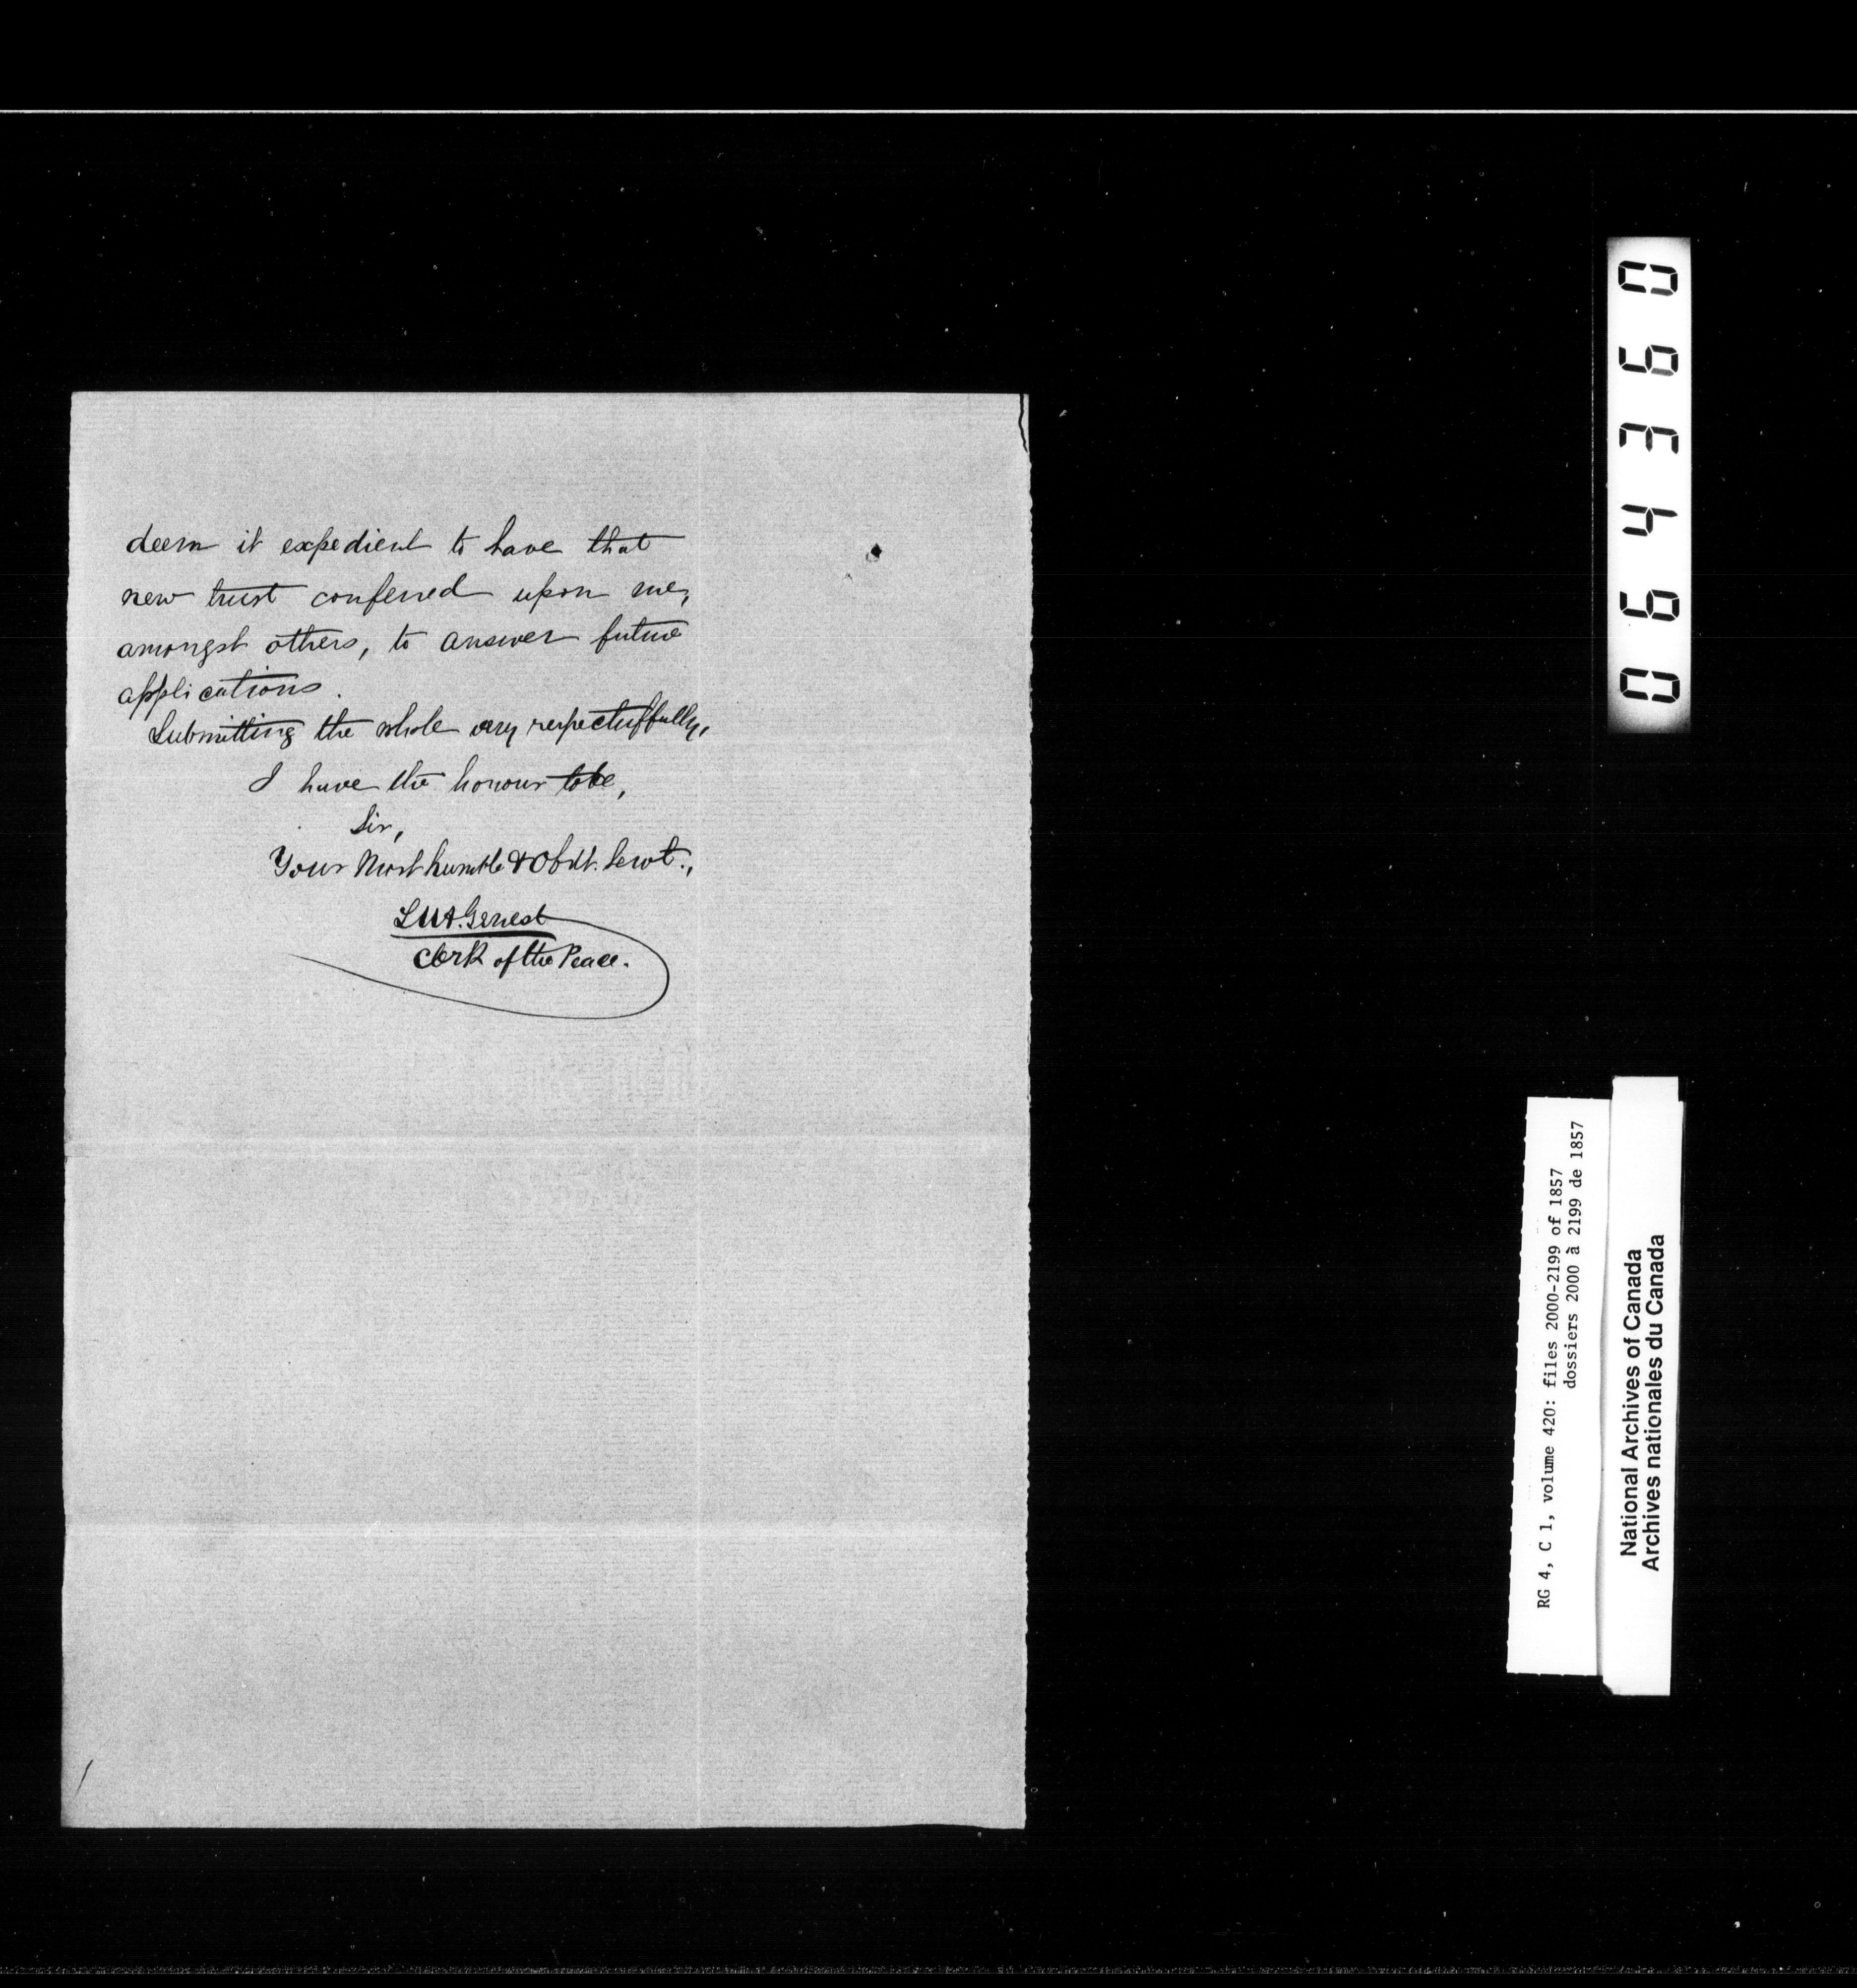 deem it expedient to have that
new trust conferred upon me,
amongst others, to answer future
applications.
Submitting the whole very respectuffully,
I have the honour to be,
Sir,
Your Most humble & Obdt. Servt.,
L.U.A. Genest
Clerk of the Peace.
064360
RG 4, C 1, volume 420: files 2000-2199 of 1857
dossiers 2000 à 2199 de 1857
National Archives of Canada
Archives nationales du Canada